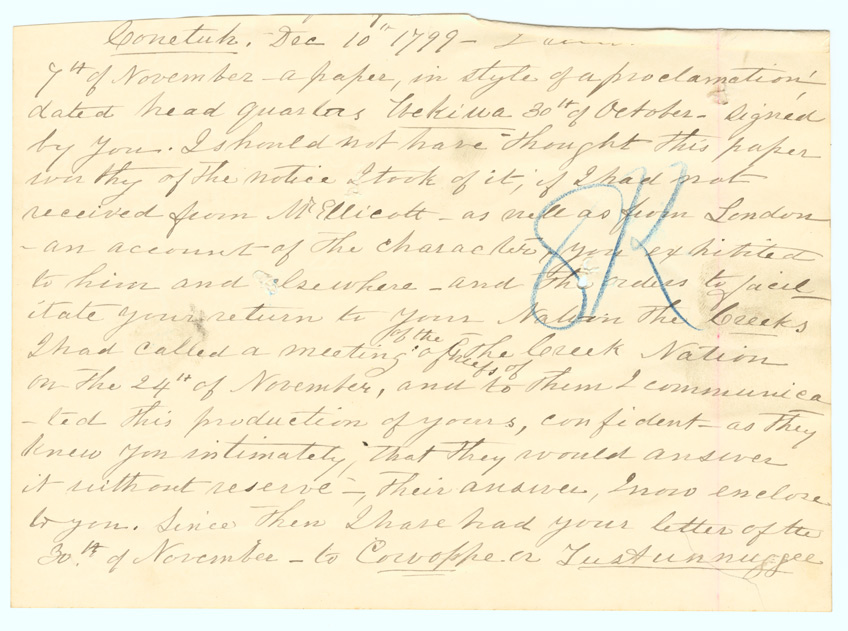 Conetuh. Dec 10th 1799 -
7th of November - a paper, in style of a proclamation
dated head quarters Wekiwa 30th of October - signed
by you. I should not have thought this paper
worthy of the notice I took of it, if I had not
received from Mr Ellicott - as well as from London
- an account of the character you exhibited
to him and elsewhere - and the orders to facil
itate your return to your Nation the Creeks
I had called a meeting of the Chiefs of the Creek Nation
on the 24th of November, and to them I communica
-ted this production of yours, confident - as they
knew you intimately, that they would answer
it without reserve -, their answer, I now enclose
to you. Since then I have had your letter of the
30th of November - to Cowoppe or Tustunnuggee
8K